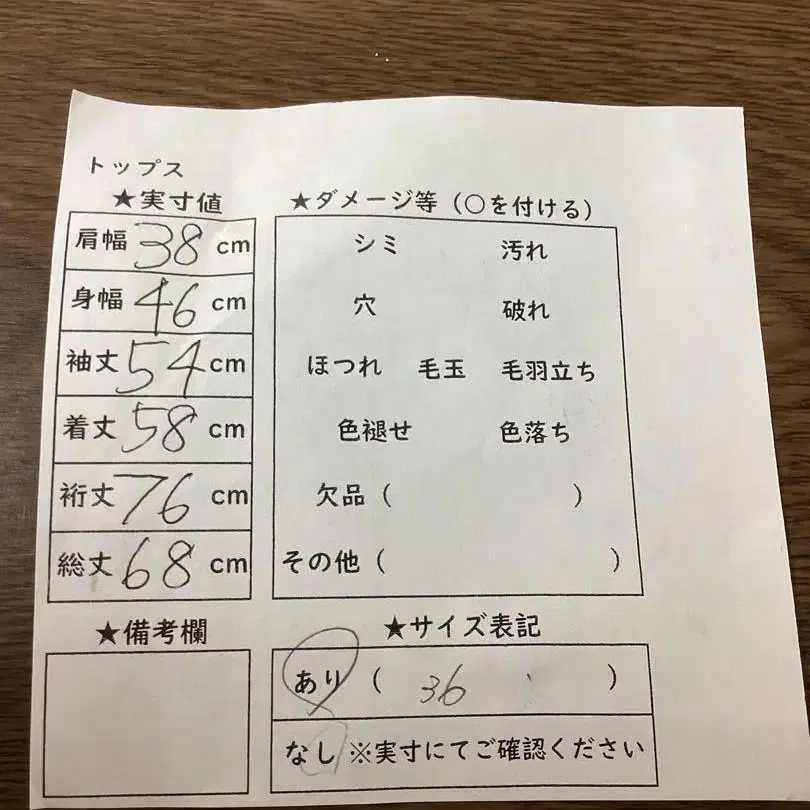 トップス
★実寸値
肩幅 38 cm
身幅 46 cm
袖丈 54 cm
着丈 58 cm
裄丈 76 cm
総丈 68 cm
★備考欄
★ダメージ等（○を付ける）
シミ 汚れ
穴 破れ
ほつれ 毛玉 毛羽立ち
色褪せ 色落ち
欠品（ ）
その他（ ）
★サイズ表記
あり（ 36 ）
なし ※実寸にてご確認ください